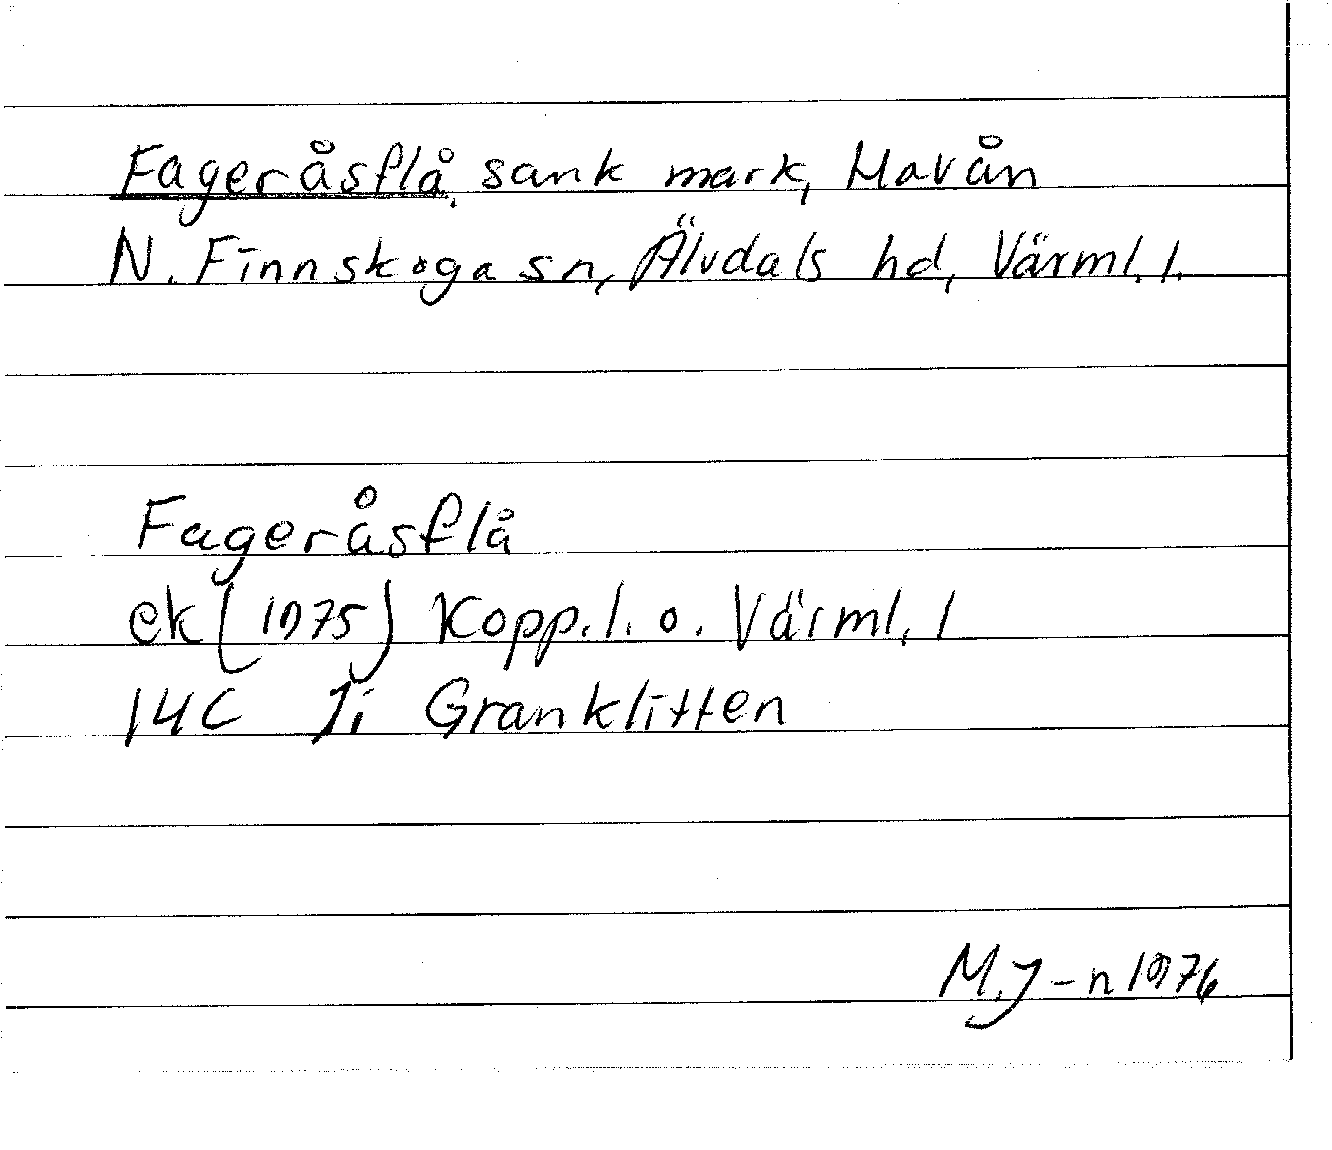 Fageråsflå, sank mark, Mavån
N. Finnskoga sn, Älvdals hd, Värml. l.
Fageråsflå
ek (1975) Kopp. l. o. Värml. l
14C 1i Granklitten
M.J-n 1976